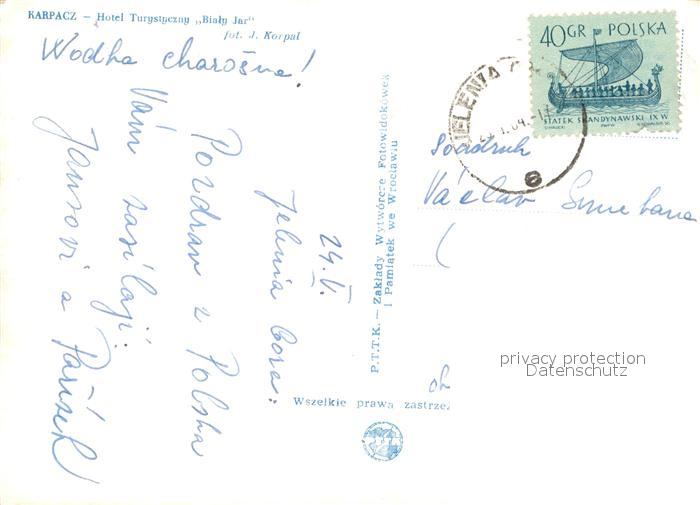 KARPACZ — Hotel Turystyczny „Biały Jar"
fot. J. Korpal
Wodha charošna!
Jelenia Gora:
24. V.
Pozdrav z Polska
Vám zasílají:
Jansovi a Pařízek
P.T.T.K. — Zakłady Wytwórcze Fotowidokówek
i Pamiątek we Wrocławiu
Wszelkie prawa zastrzeż
40 GR POLSKA
STATEK SKANDYNAWSKI IX W
JELENIA
e
Soudruh
Václav Smetana
privacy protection
Datenschutz